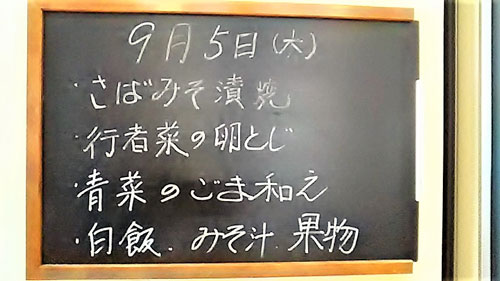 9月5日(木)
・さばみそ漬焼
・行者菜の卵とじ
・青菜のごま和え
・白飯.みそ汁.果物